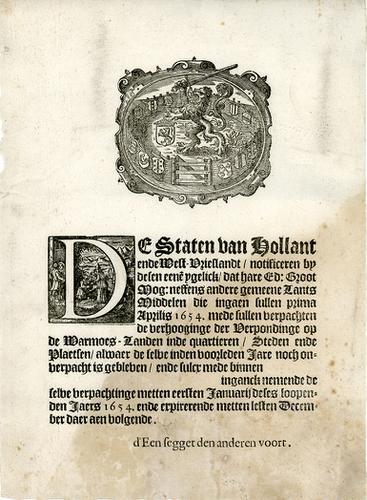 DE Staten van Hollant
ende West-Vrieslandt / notificeren by
desen eenē ygelick / dat hare Ed: Groot
Mog: neffens andere gemeene Lants
Middelen die ingaen sullen prima
Aprilis 1654. mede sullen verpachten
de verhooginge der Verpondinge op
de Warmoes-Landen inde quartieren / Steden ende
Plaetsen / alwaer de selve inden voorleden Jare noch on-
verpacht is gebleven / ende sulcr mede binnen
inganck nemende de
selve verpachtinge metten eersten Januarij deses loopen-
den Jaers 1654. ende expirerende metten lesten Decem-
ber daer aen volgende.
d'Een segget den anderen voort.